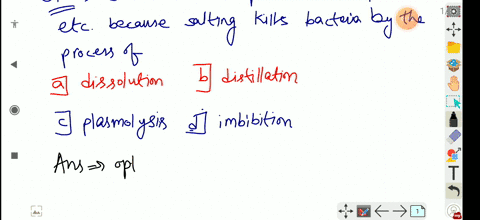 etc. because salting kills bacteria by the
process of
a] dissolution b] distillation
c] plasmolysis d] imbibition
Ans ⇒ opt